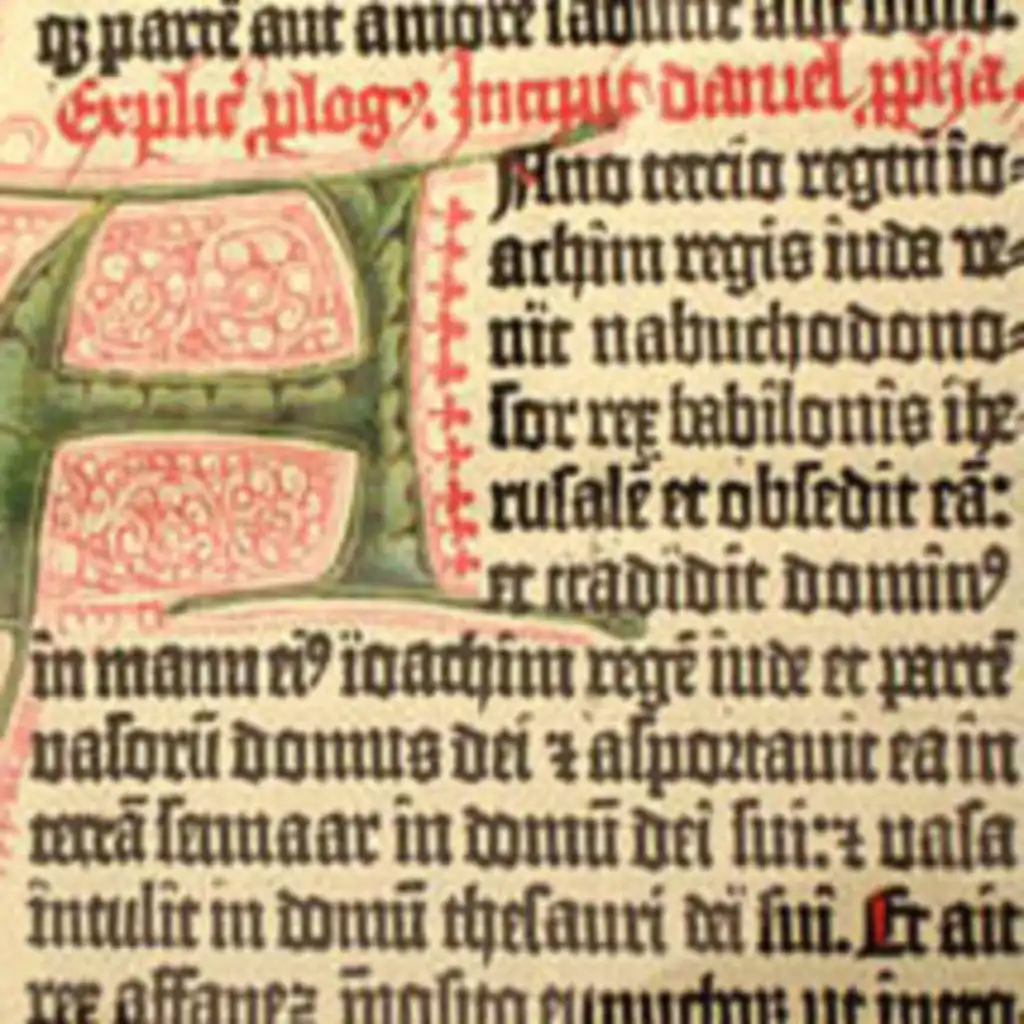 qȝ partē aut amore labūtur aut odio.
Explic̄ ꝓlogꝰ. Incipit daniel ꝓp̄ħa.
Ano tercio regni io-
achim regis iuda ve-
nit nabuchodono-
sor rex babilonis ihe-
rusalē et obsedit eā:
et tradidit dominꝰ
in manu eiꝰ ioachim regē iude et partē
vasorū domus dei ⁊ asportauit ea in
terrā sennaar in domū dei sui: ⁊ vasa
intulit in domū thesauri dei sui. Et ait
rex affanez